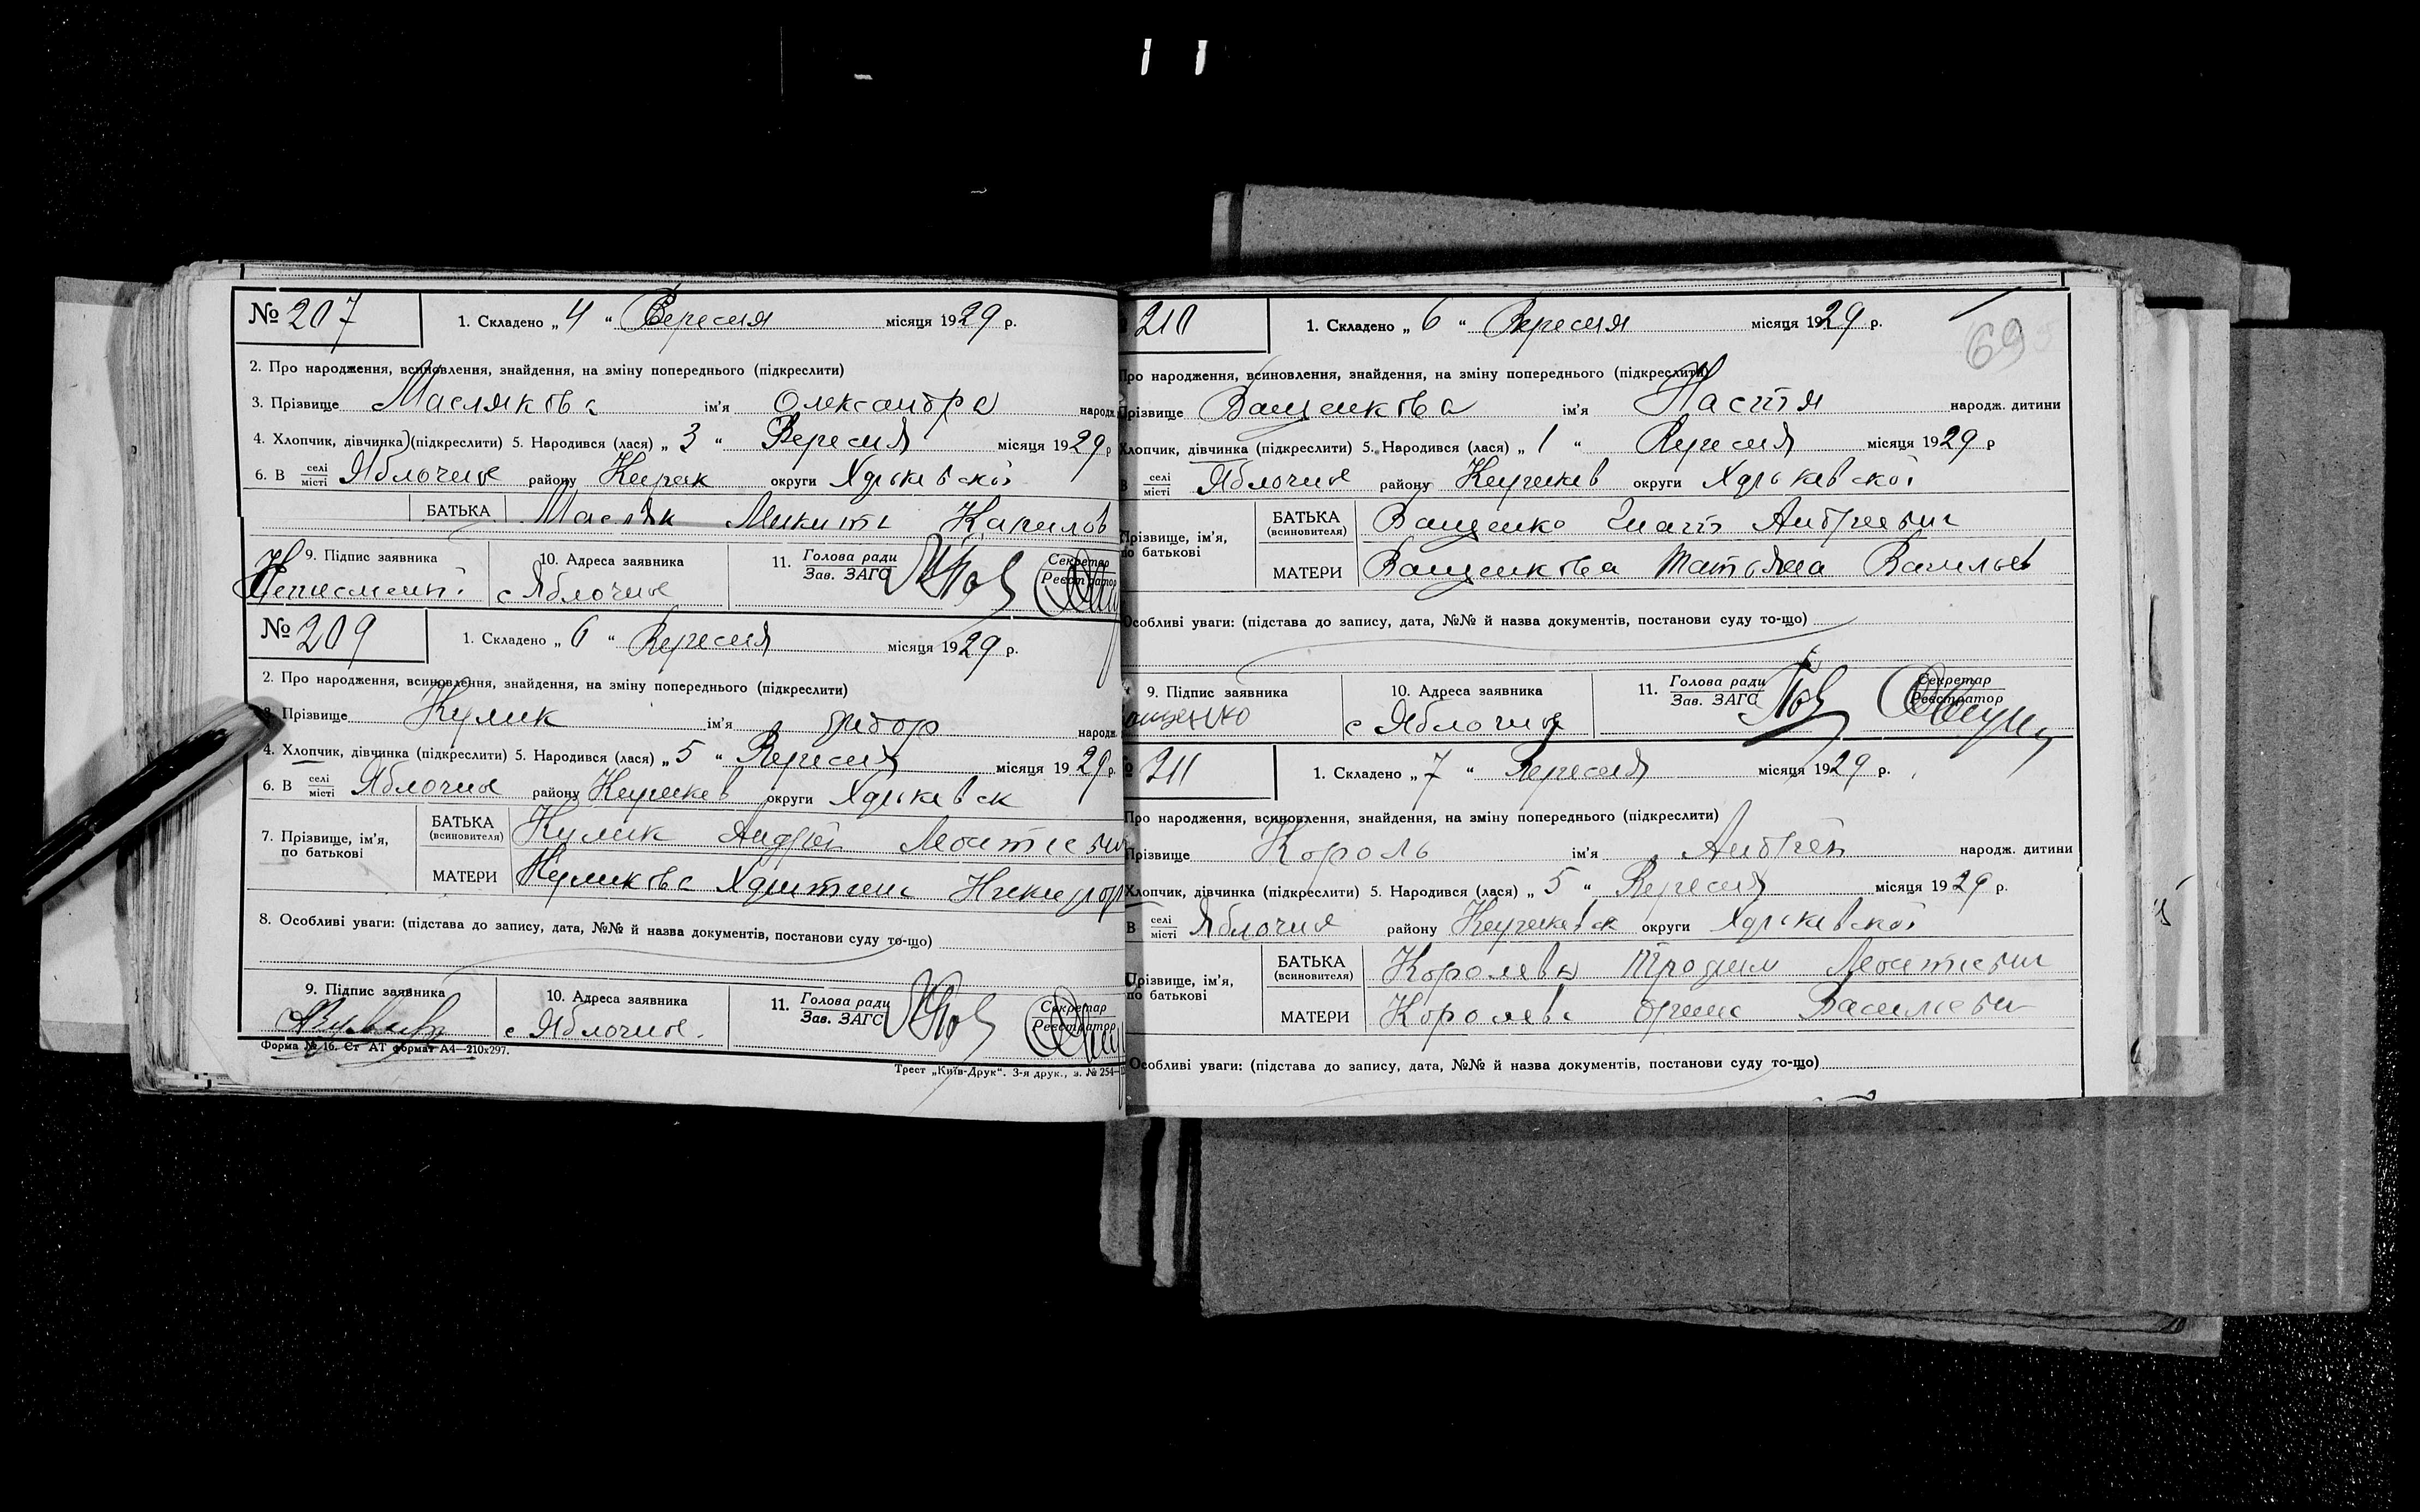 № 207
1. Складено „4“ Вересня місяця 1929 р.
2. Про народження, всиновлення, знайдення, на зміну попереднього (підкреслити)
3. Прізвище Маслякова ім'я Олександра народж.
4. Хлопчик, дівчинка (підкреслити) 5. Народився (лася) „3“ Вересня місяця 1929 р
6. В селі місті Яблочне району округи Харьківської
БАТЬКА Масляк Микита
9. Підпис заявника
10. Адреса заявника
11. Голова ради Зав. ЗАГС
Секретар Реєстратор
Неписменн. с Яблочне
№ 209
1. Складено „6“ Вересня місяця 1929 р.
2. Про народження, всиновлення, знайдення, на зміну попереднього (підкреслити)
3. Прізвище Кулик ім'я народж.
4. Хлопчик, дівчинка (підкреслити) 5. Народився (лася) „5“ Вересня місяця 1929 р.
6. В селі місті Яблочне району округи Харьківськ
7. Прізвище, ім'я, по батькові
БАТЬКА (всиновителя) Кулик Андрій Леонтьевич
МАТЕРИ Куликова
8. Особливі уваги: (підстава до запису, дата, №№ й назва документів, постанови суду то-що)
9. Підпис заявника
10. Адреса заявника
11. Голова ради Зав. ЗАГС
Секретар Реєстратор
с Яблочне.
Форма № 16. Ст АТ формат А4—210х297.
Трест „Київ-Друк“. 3-я друк., з. № 254—
210
1. Складено „6“ Вересня місяця 1929 р.
69
Про народження, всиновлення, знайдення, на зміну попереднього (підкреслити)
Прізвище Ващенкова ім'я Настя народж. дитини
Хлопчик, дівчинка (підкреслити) 5. Народився (лася) „1“ Вересня місяця 1929 р
В селі місті Яблочне району округи Харьківської
Прізвище, ім'я, по батькові
БАТЬКА (всиновителя) Ващенко Гнат Андреевич
МАТЕРИ Ващенкова Татьяна Васильев
Особливі уваги: (підстава до запису, дата, №№ й назва документів, постанови суду то-що)
9. Підпис заявника
10. Адреса заявника
11. Голова ради Зав. ЗАГС
Секретар Реєстратор
ащенко с Яблочне
211
1. Складено „7“ Вересня місяця 1929 р.
Про народження, всиновлення, знайдення, на зміну попереднього (підкреслити)
Прізвище Король ім'я Андрей народж. дитини
Хлопчик, дівчинка (підкреслити) 5. Народився (лася) „5“ Вересня місяця 1929 р.
В селі місті Яблочне району округи Харьківської
Прізвище, ім'я, по батькові
БАТЬКА (всиновителя) Трохим Леонтьевич
МАТЕРИ Королева
Особливі уваги: (підстава до запису, дата, №№ й назва документів, постанови суду то-що)